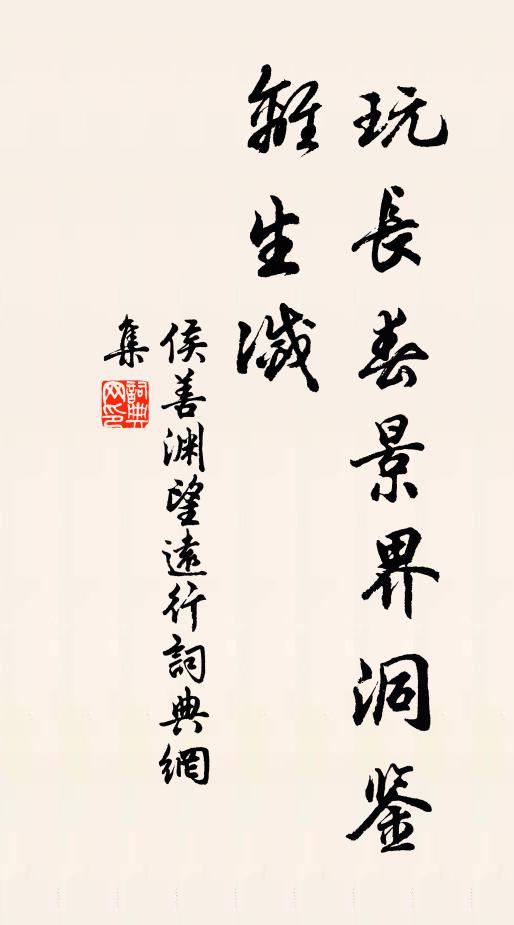 玩長春景界洞鉴
離生滅
侯善渊望遠行詞典網
集
詞典網印